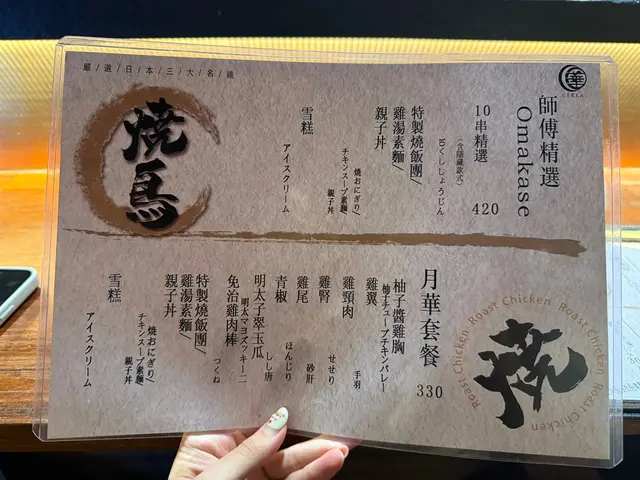 嚴/選/日/本/三/大/名/雞
華
GEKKA
師傅精選
Omakase
10串精選
420
(含隱藏款式)
10くししょうじん
特製燒飯團/
雞湯素麵/
親子丼
焼おにぎり/
チキンスープ素麺/
親子丼
雪糕
アイスクリーム
燒鳥
月華套餐
330
柚子醬雞胸
柚子チューブチキンバレー
雞翼
手羽
雞頸肉
せせり
雞腎
砂肝
雞尾
ほんじり
青椒
しし唐
明太子翠玉瓜
明太マヨズッキーニ
免治雞肉棒
つくね
特製燒飯團/
雞湯素麵/
親子丼
焼おにぎり/
チキンスープ素麺/
親子丼
雪糕
アイスクリーム
Roast Chicken Roast Chicken Roast Chicken Roast Chicken
燒